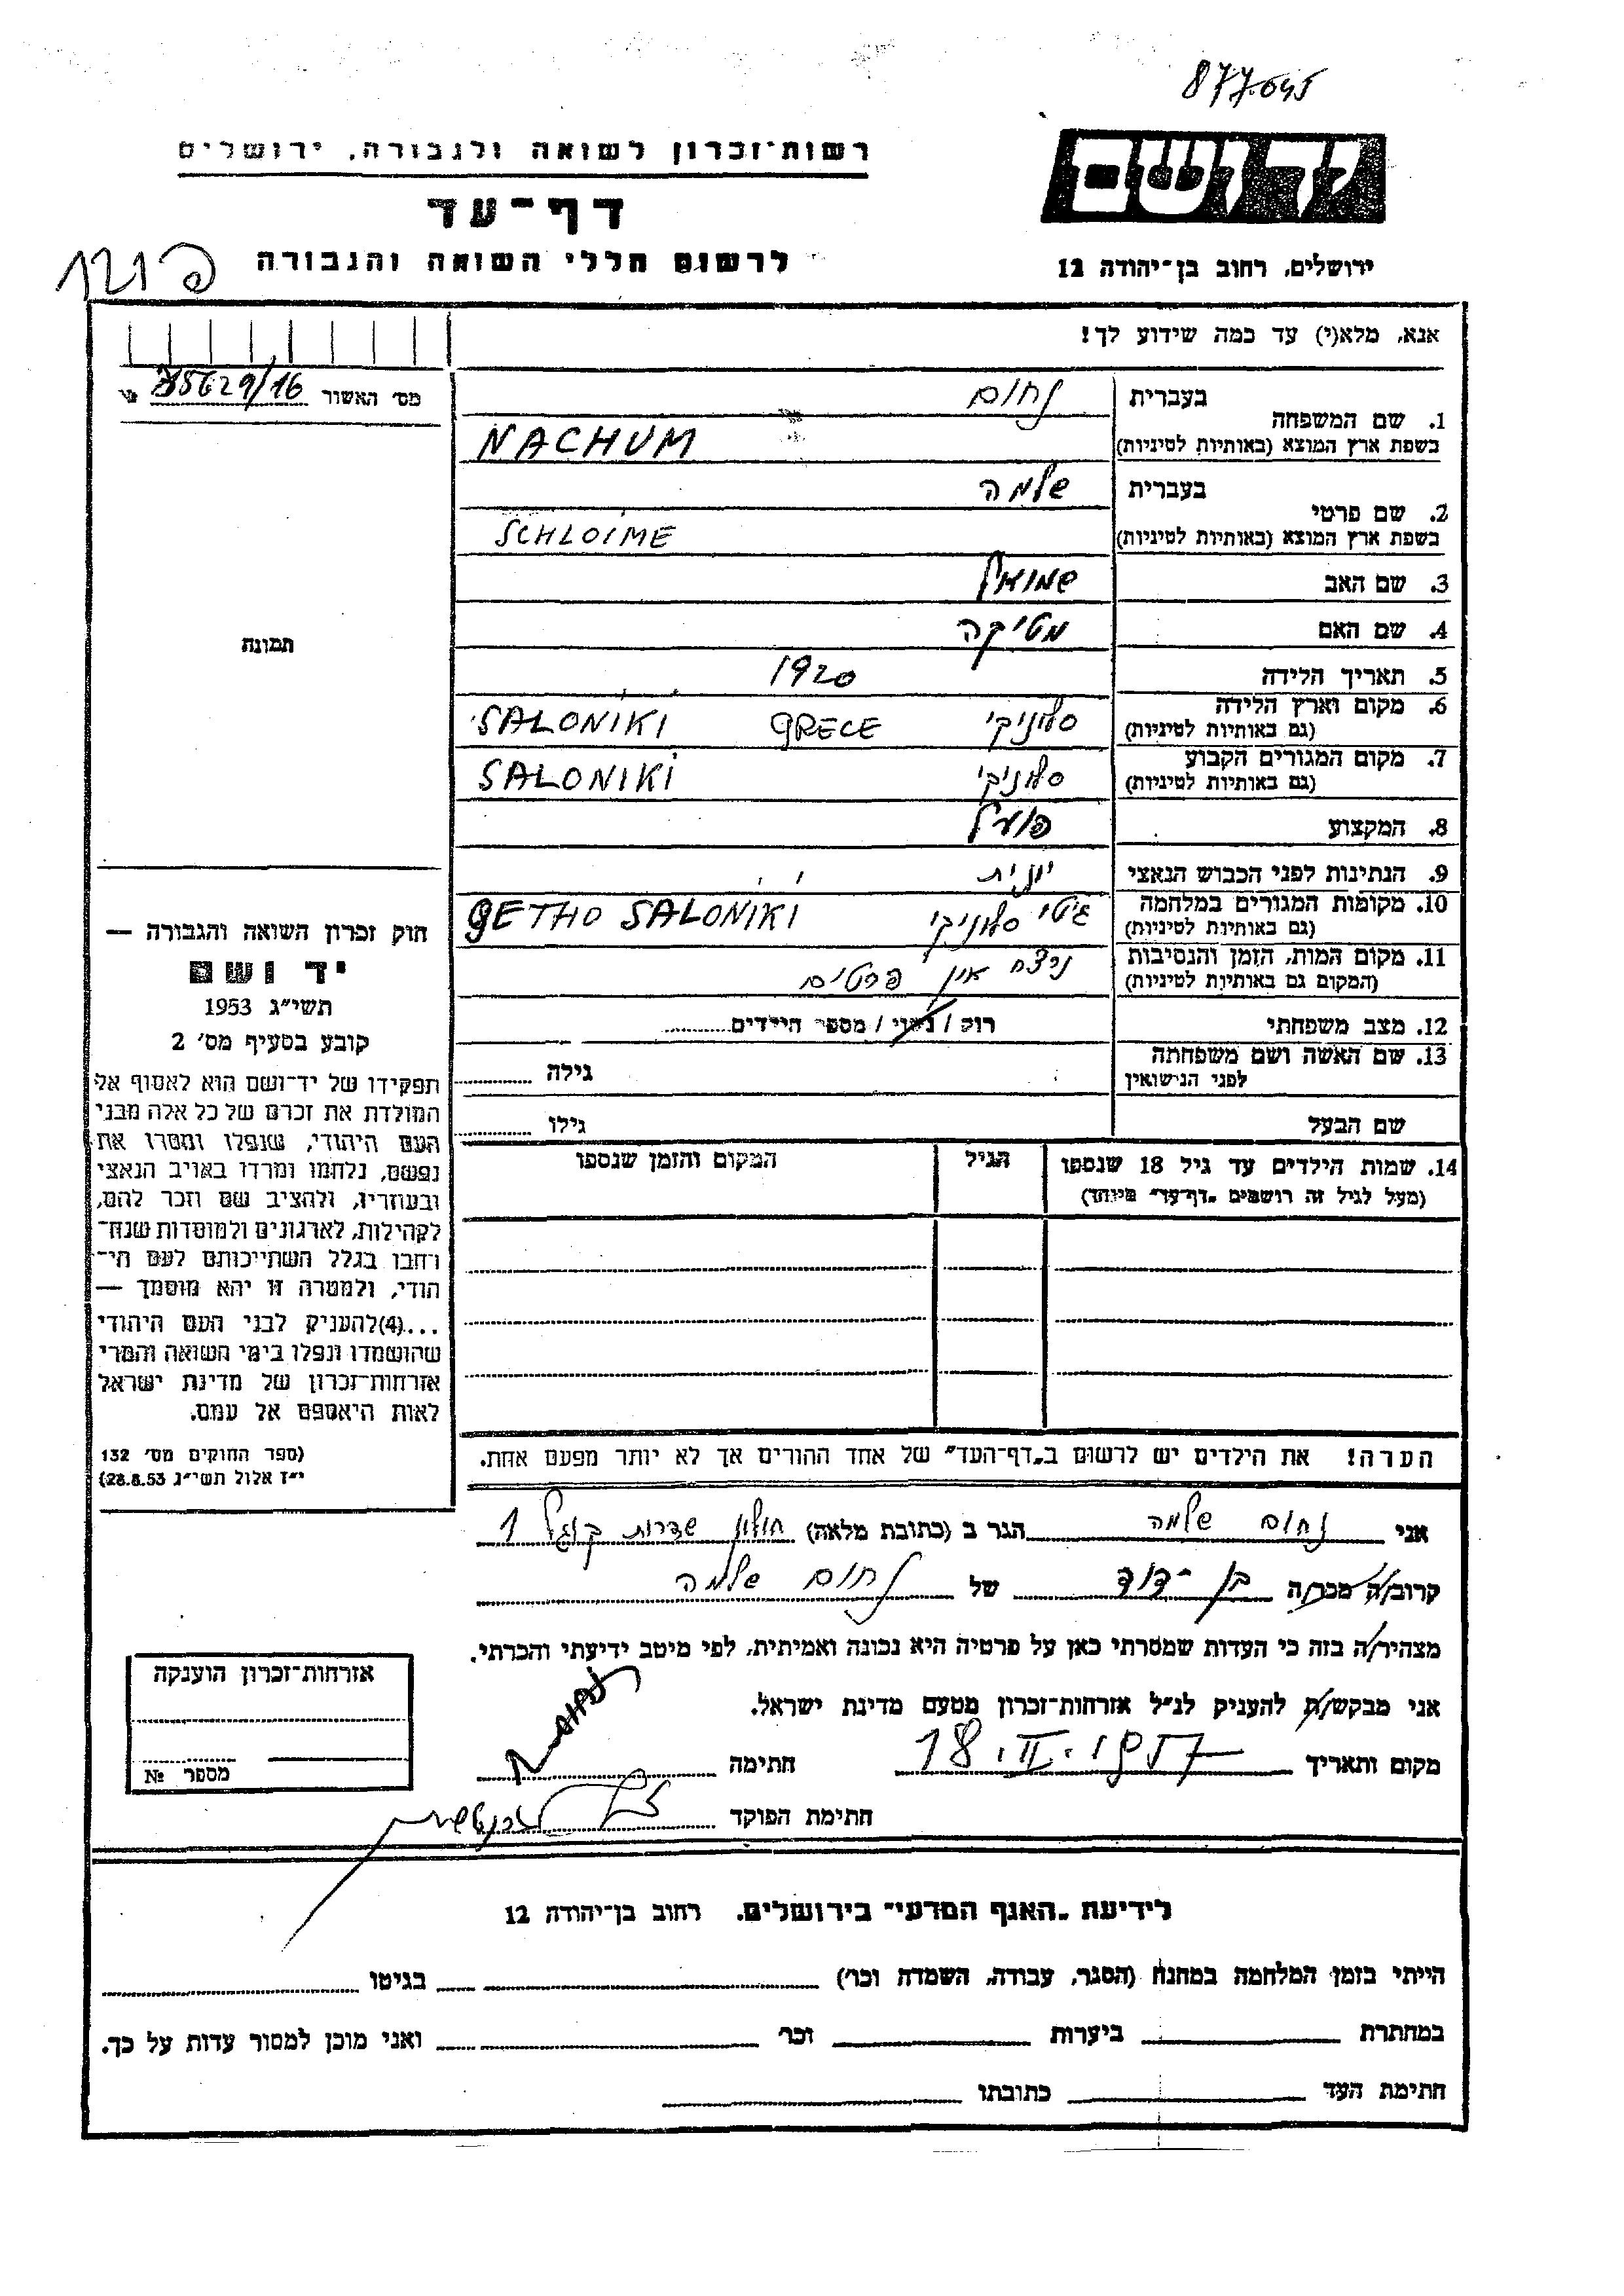 877.645
יד ושם
ירושלים, רחוב בן־יהודה 12
רשות־זכרון לשואה ולגבורה, ירושלים
דף־עד
לרשום חללי השואה והגבורה
אנא, מלא(י) עד כמה שידוע לך!
מס׳ האשור 35629/16
1. שם המשפחה
בעברית נחום
בשפת ארץ המוצא (באותיות לטיניות) NACHUM
2. שם פרטי
בעברית שלמה
בשפת ארץ המוצא (באותיות לטיניות) SCHLOIME
3. שם האב שמואל
4. שם האם מטיקה
5. תאריך הלידה 1920
6. מקום וארץ הלידה (גם באותיות לטיניות) סלוניקי GRECE SALONIKI
7. מקום המגורים הקבוע (גם באותיות לטיניות) סלוניקי SALONIKI
8. המקצוע פועל
9. הנתינות לפני הכבוש הנאצי יונית
10. מקומות המגורים במלחמה (גם באותיות לטיניות) גיטו סלוניקי GETHO SALONIKI
11. מקום המות, הזמן והנסיבות (המקום גם באותיות לטיניות) נרצח אין פרטים
12. מצב משפחתי רוק / נשוי / מספר הילדים
13. שם האשה ושם משפחתה לפני הנישואין גילה
שם הבעל גילו
14. שמות הילדים עד גיל 18 שנספו הגיל המקום והזמן שנספו
(מעל לגיל זה רושמים „דף־עד״ מיוחד)
הערה! את הילדים יש לרשום ב„דף־העד״ של אחד ההורים אך לא יותר מפעם אחת.
תמונה
חוק זכרון השואה והגבורה —
יד ושם
תשי״ג 1953
קובע בסעיף מס׳ 2
תפקידו של יד־ושם הוא לאסוף אל
המולדת את זכרם של כל אלה מבני
העם היהודי, שנפלו ומסרו את
נפשם, נלחמו ומרדו באויב הנאצי
ובעוזריו, ולהציב שם וזכר להם,
לקהילות, לארגונים ולמוסדות שנח־
רבו בגלל השתייכותם לעם הי־
הודי, ולמטרה זו יהא מוסמך —
...(4)להעניק לבני העם היהודי
שהושמדו ונפלו בימי השואה והמרי
אזרחות־זכרון של מדינת ישראל
לאות היאספם אל עמם.
(ספר החוקים מס׳ 132
י״ז אלול תשי״ג 28.8.53)
אני נחום שלמה הגר ב (כתובת מלאה) חולון שדרות קוגל 1
קרוב/ה מכר/ה בן־דוד של נחום שלמה
מצהיר/ה בזה כי העדות שמסרתי כאן על פרטיה היא נכונה ואמיתית, לפי מיטב ידיעתי והכרתי.
אני מבקש/ת להעניק לנ״ל אזרחות־זכרון מטעם מדינת ישראל.
מקום ותאריך 18.II.1957 חתימה נחום
חתימת הפוקד
אזרחות־זכרון הוענקה
מספר №
לידיעת „האגף המדעי״ בירושלים. רחוב בן־יהודה 12
הייתי בזמן המלחמה במחנה (הסגר, עבודה, השמדה וכו׳) בגיטו
במחתרת ביערות וכו׳ ואני מוכן למסור עדות על כך.
חתימת העד כתובתו